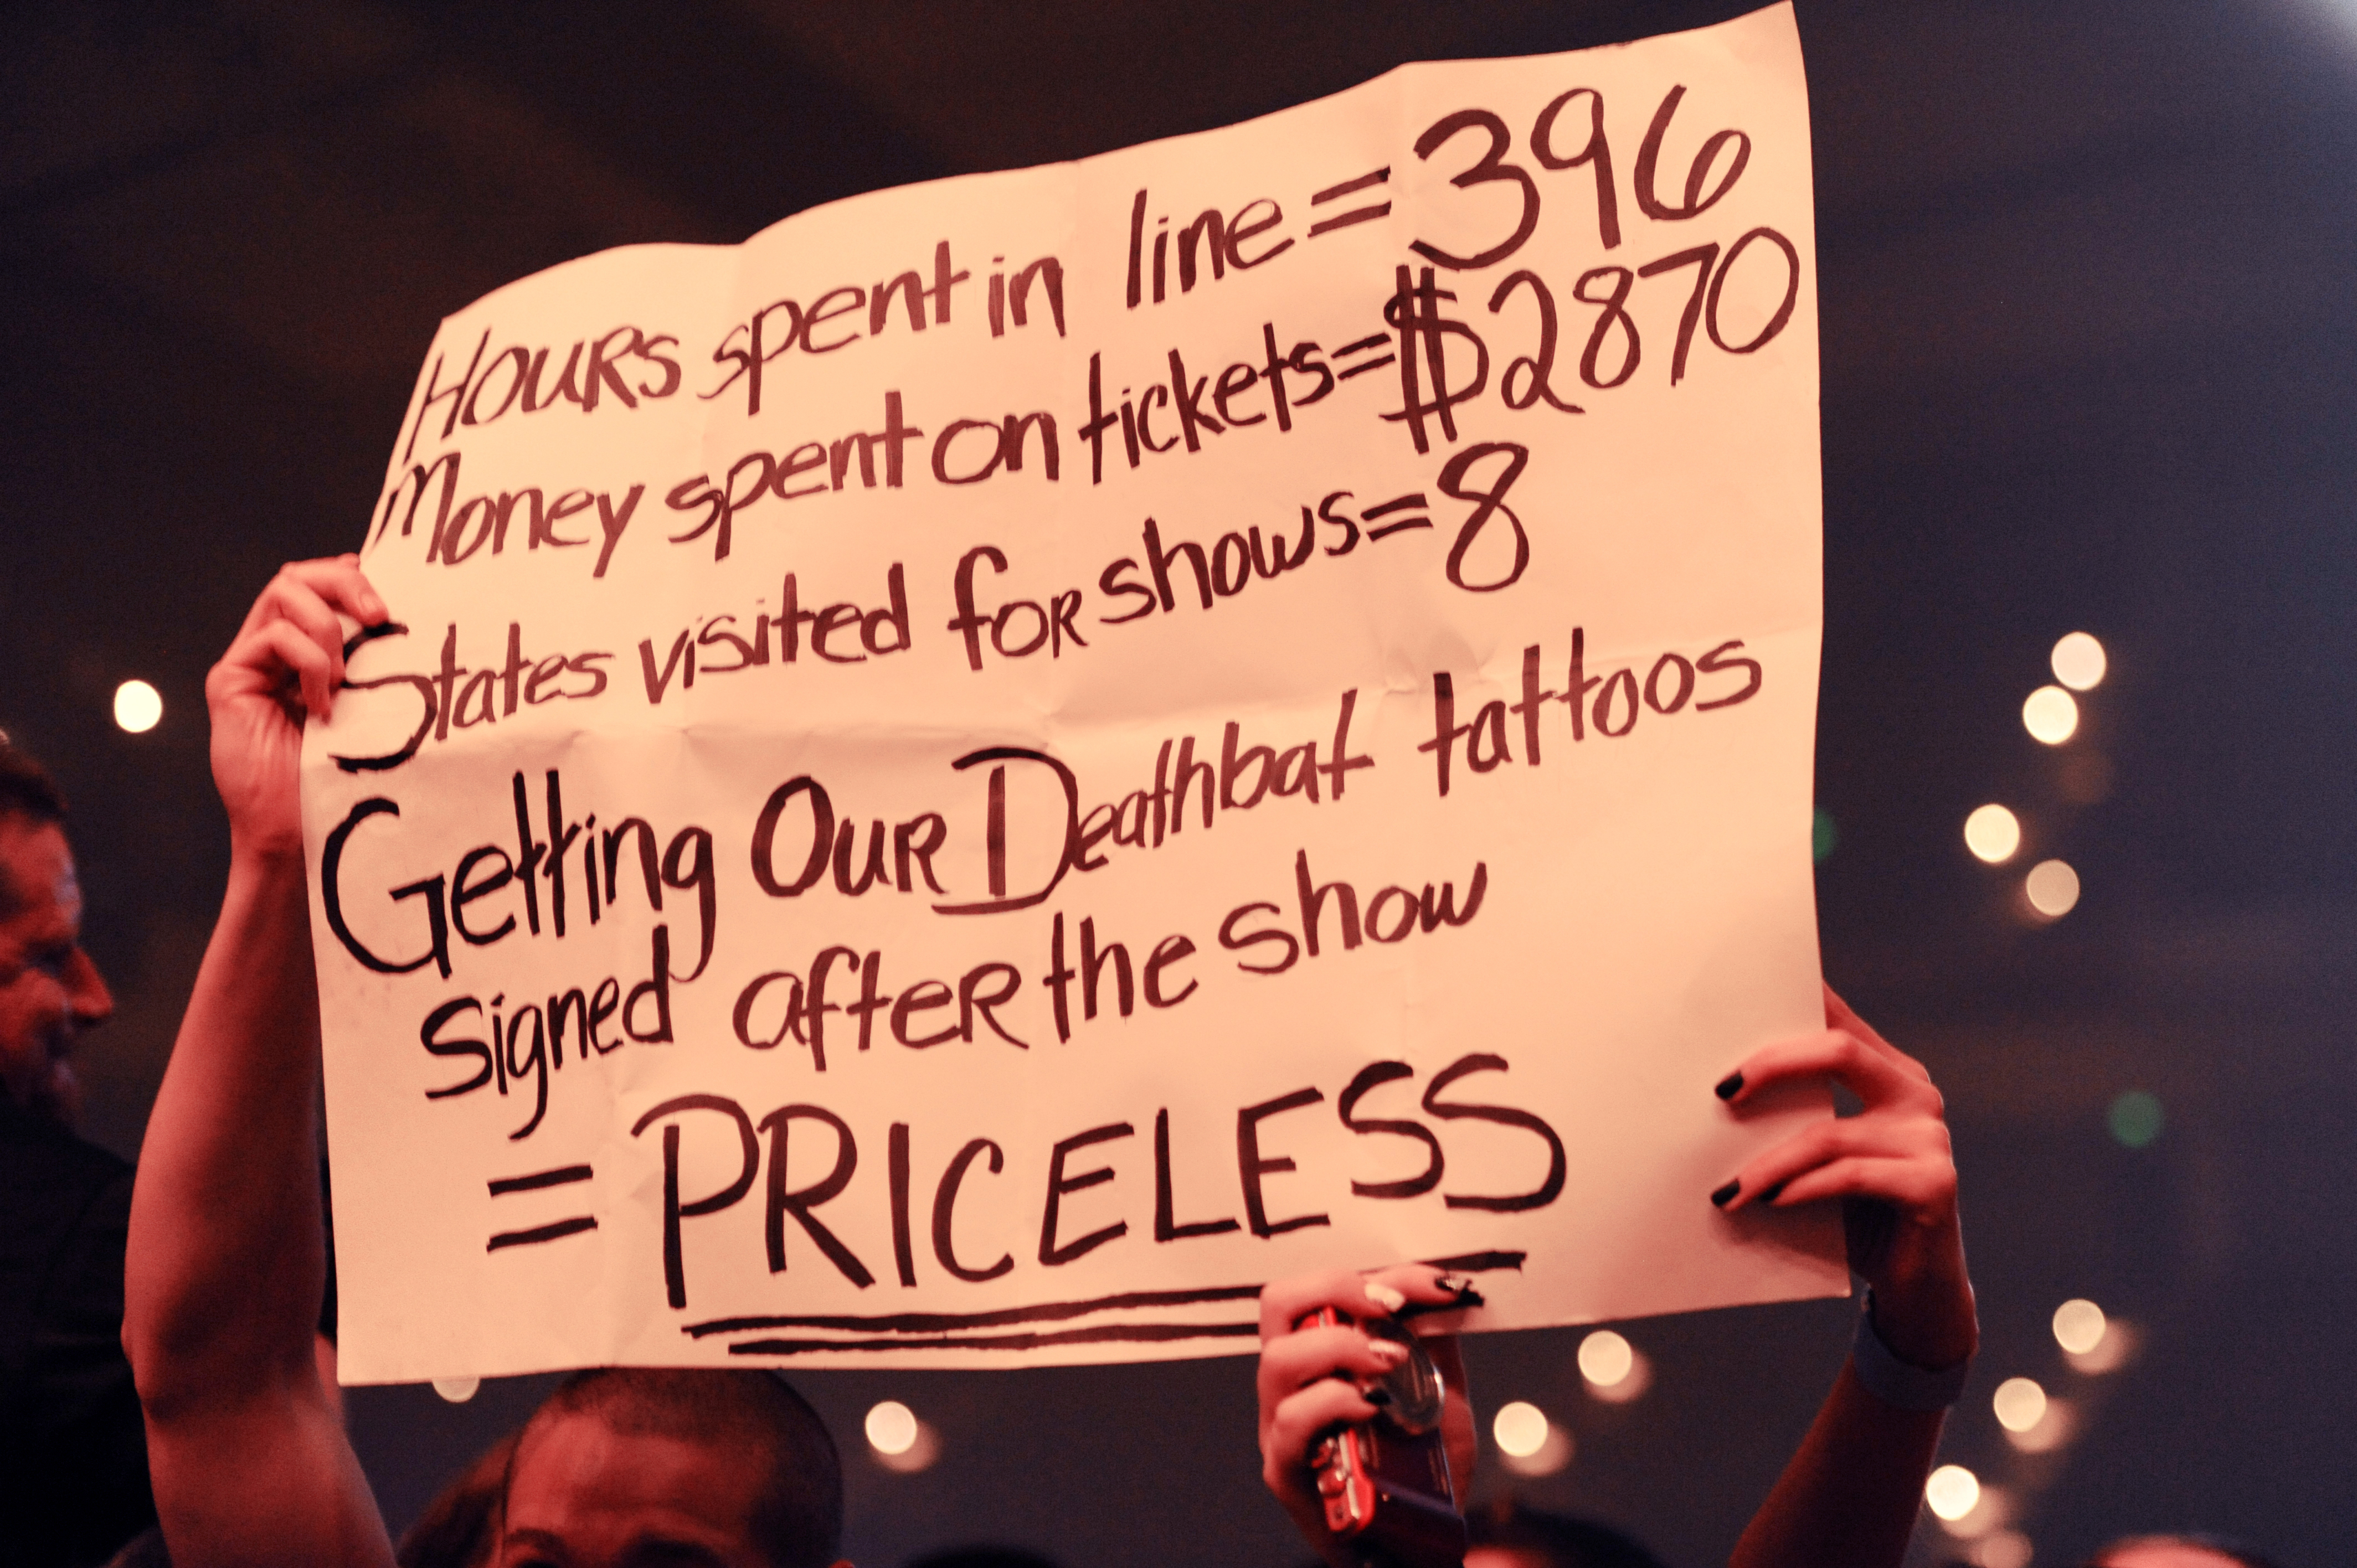 Hours spent in line = 396
Money spent on tickets = $2870
States visited for shows = 8
Getting Our Deathbat tattoos
signed after the show
= PRICELESS